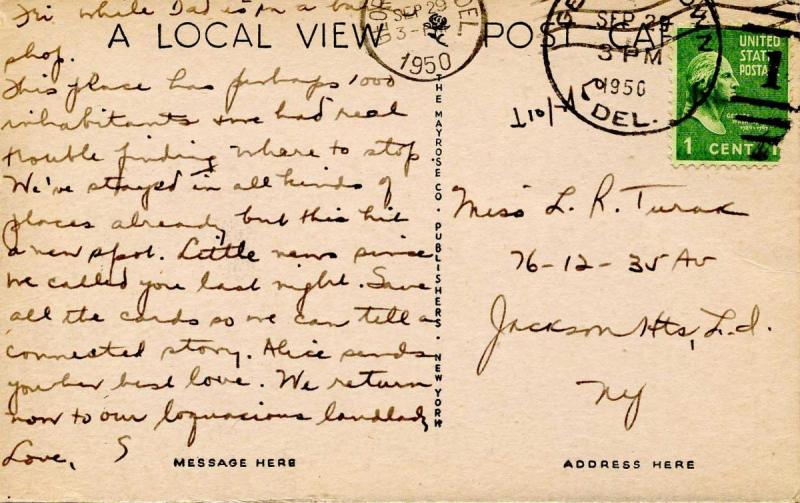 Fri while Dad is in a
shop.
This place has perhaps 1000
inhabitants & we had real
trouble finding where to stop.
We've stayed in all kinds of
places already but this hit
a new spot. Little news since
we called you last night. Save
all the cards so we can tell a
connected story. Alice sends
you her best love. We return
now to our loquacious landlady
Love, S
MESSAGE HERE
A LOCAL VIEW POST CARD
THE MAYROSE CO. PUBLISHERS. NEW YORK
SEP 29
3-PM
1950
DEL.
SEP 29
3 PM
1950
DEL.
UNITED
STATES
POSTAGE
1 CENT 1
Miss L. R. Turak
76-12-35 Av
Jackson Hts, L.I.
NY
ADDRESS HERE